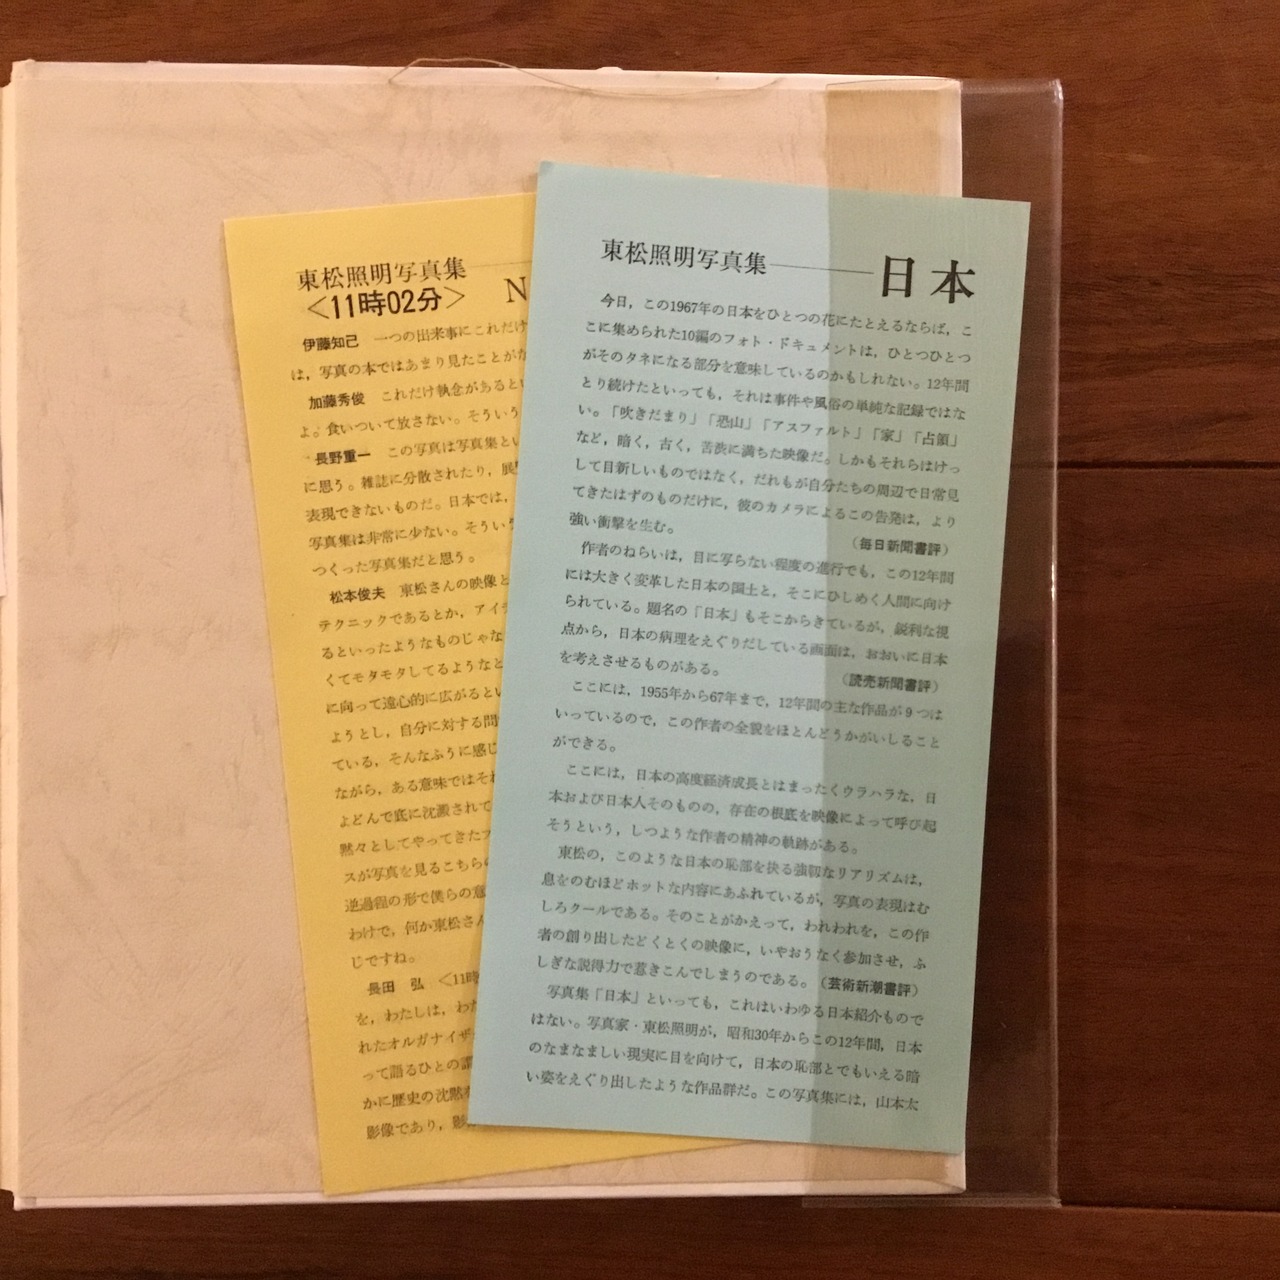 東松照明写真集
<11時02分> N
伊藤知己 一つの出来事にこれだけ
は，写真の本ではあまり見たことがな
加藤秀俊 これだけ執念があるとい
よ。食いついて放さない。そういう
長野重一 この写真は写真集とい
に思う。雑誌に分散されたり，展
表現できないものだ。日本では，
写真集は非常に少ない。そういう
つくった写真集だと思う。
松本俊夫 東松さんの映像と
テクニックであるとか，アイデ
るといったようなものじゃな
くてモタモタしてるようなと
に向って遠心的に広がるとい
ようとし，自分に対する問
ている，そんなふうに感じ
ながら，ある意味ではそれ
よどんで底に沈澱されて
黙々としてやってきたプ
スが写真を見るこちらの
逆過程の形で僕らの意
わけで，何か東松さん
じですね。
長田 弘 <11時
を，わたしは，わた
れたオルガナイザー
って語るひとの
かに歴史の沈黙
影像であり，影
東松照明写真集――日本
今日，この1967年の日本をひとつの花にたとえるならば，こ
こに集められた10編のフォト・ドキュメントは，ひとつひとつ
がそのタネになる部分を意味しているのかもしれない。12年間
とり続けたといっても，それは事件や風俗の単純な記録ではな
い。「吹きだまり」「恐山」「アスファルト」「家」「占領」
など，暗く，古く，苦渋に満ちた映像だ。しかもそれらはけっ
して目新しいものではなく，だれもが自分たちの周辺で日常見
てきたはずのものだけに，彼のカメラによるこの告発は，より
強い衝撃を生む。 （毎日新聞書評）
作者のねらいは，目に写らない程度の進行でも，この12年間
には大きく変革した日本の国土と，そこにひしめく人間に向け
られている。題名の「日本」もそこからきているが，鋭利な視
点から，日本の病理をえぐりだしている画面は，おおいに日本
を考えさせるものがある。 （読売新聞書評）
ここには，1955年から67年まで，12年間の主な作品が9つは
いっているので，この作者の全貌をほとんどうかがいしること
ができる。
ここには，日本の高度経済成長とはまったくウラハラな，日
本および日本人そのものの，存在の根底を映像によって呼び起
そうという，しつような作者の精神の軌跡がある。
東松の，このような日本の恥部を抉る強靱なリアリズムは，
息をのむほどホットな内容にあふれているが，写真の表現はむ
しろクールである。そのことがかえって，われわれを，この作
者の創り出したどくとくの映像に，いやおうなく参加させ，ふ
しぎな説得力で惹きこんでしまうのである。（芸術新潮書評）
写真集「日本」といっても，これはいわゆる日本紹介もので
はない。写真家・東松照明が，昭和30年からこの12年間，日本
のなまなましい現実に目を向けて，日本の恥部とでもいえる暗
い姿をえぐり出したような作品群だ。この写真集には，山本太